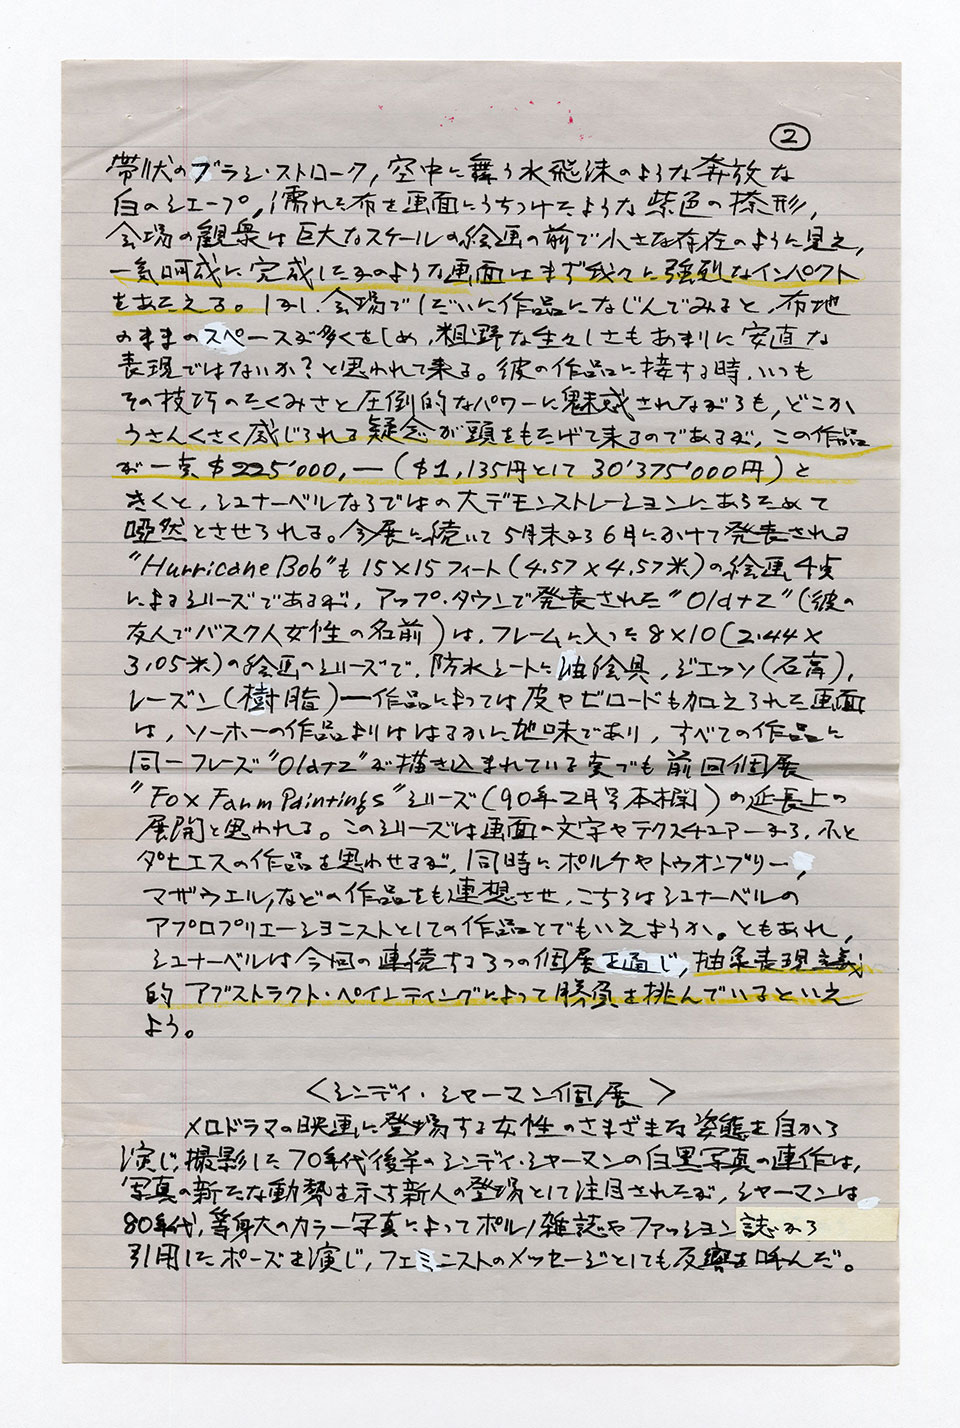 ②
帯状のブラシ・ストローク，空中に舞う水飛沫のような奔放な
白のシェープ，濡れた布を画面にうちつけたような紫色の捺形，
会場の観衆は巨大なスケールの絵画の前で小さな存在のように見え，
一気呵成に完成したかのような画面はまず我々に強烈なインパクト
をあたえる。しかし，会場でしだいに作品になじんでみると，布地
のままのスペースが多くをしめ，粗野な生々しさもあまりに安直な
表現ではないか？と思われて来る。彼の作品に接する時，いつも
その技巧のたくみさと圧倒的なパワーに魅惑されながらも，どこか
うさんくさく感じられる疑念が頭をもたげて来るのであるが，この作品
が一点$225'000,—（$1，135円として30'375'000円）と
きくと，シュナーベルならではの大デモンストレーションにあらためて
唖然とさせられる。今展に続いて5月末から6月にかけて発表される
"Hurricane Bob"も15×15フィート（4.57×4.57米）の絵画4点
によるシリーズであるが，アップ・タウンで発表された"Olatz"（彼の
友人でバスク人女性の名前）は，フレームに入った8×10（2.44×
3.05米）の絵画のシリーズで，防水シートに油絵具，ジェッソ（石膏），
レーズン（樹脂）—作品によっては皮やビロードも加えられた画面
は，ソーホーの作品よりははるかに地味であり，すべての作品に
同一フレーズ"Olatz"が描き込まれている点でも前回個展
"Fox Farm Paintings"シリーズ（90年2月号本欄）の延長上の
展開と思われる。このシリーズは画面の文字やテクスチュアーから，ふと
タピエスの作品を思わせるが，同時にポルケやトゥオンブリー，
マザウエル，などの作品をも連想させ，こちらはシュナーベルの
アプロプリエーショニストとしての作品とでもいえようか。ともあれ，
シュナーベルは今回の連続する3つの個展を通じ，抽象表現主義
的アブストラクト・ペインティングによって勝負を挑んでいるといえ
よう。
〈シンディ・シャーマン個展〉
メロドラマの映画に登場する女性のさまざまな姿態を自から
演じ，撮影した70年代後半のシンディ・シャーマンの白黒写真の連作は，
写真の新たな動勢を示す新人の登場として注目されたが，シャーマンは
80年代，等身大のカラー写真によってポルノ雑誌やファッション誌から
引用したポーズを演じ，フェミニストのメッセージとしても反響を呼んだ。